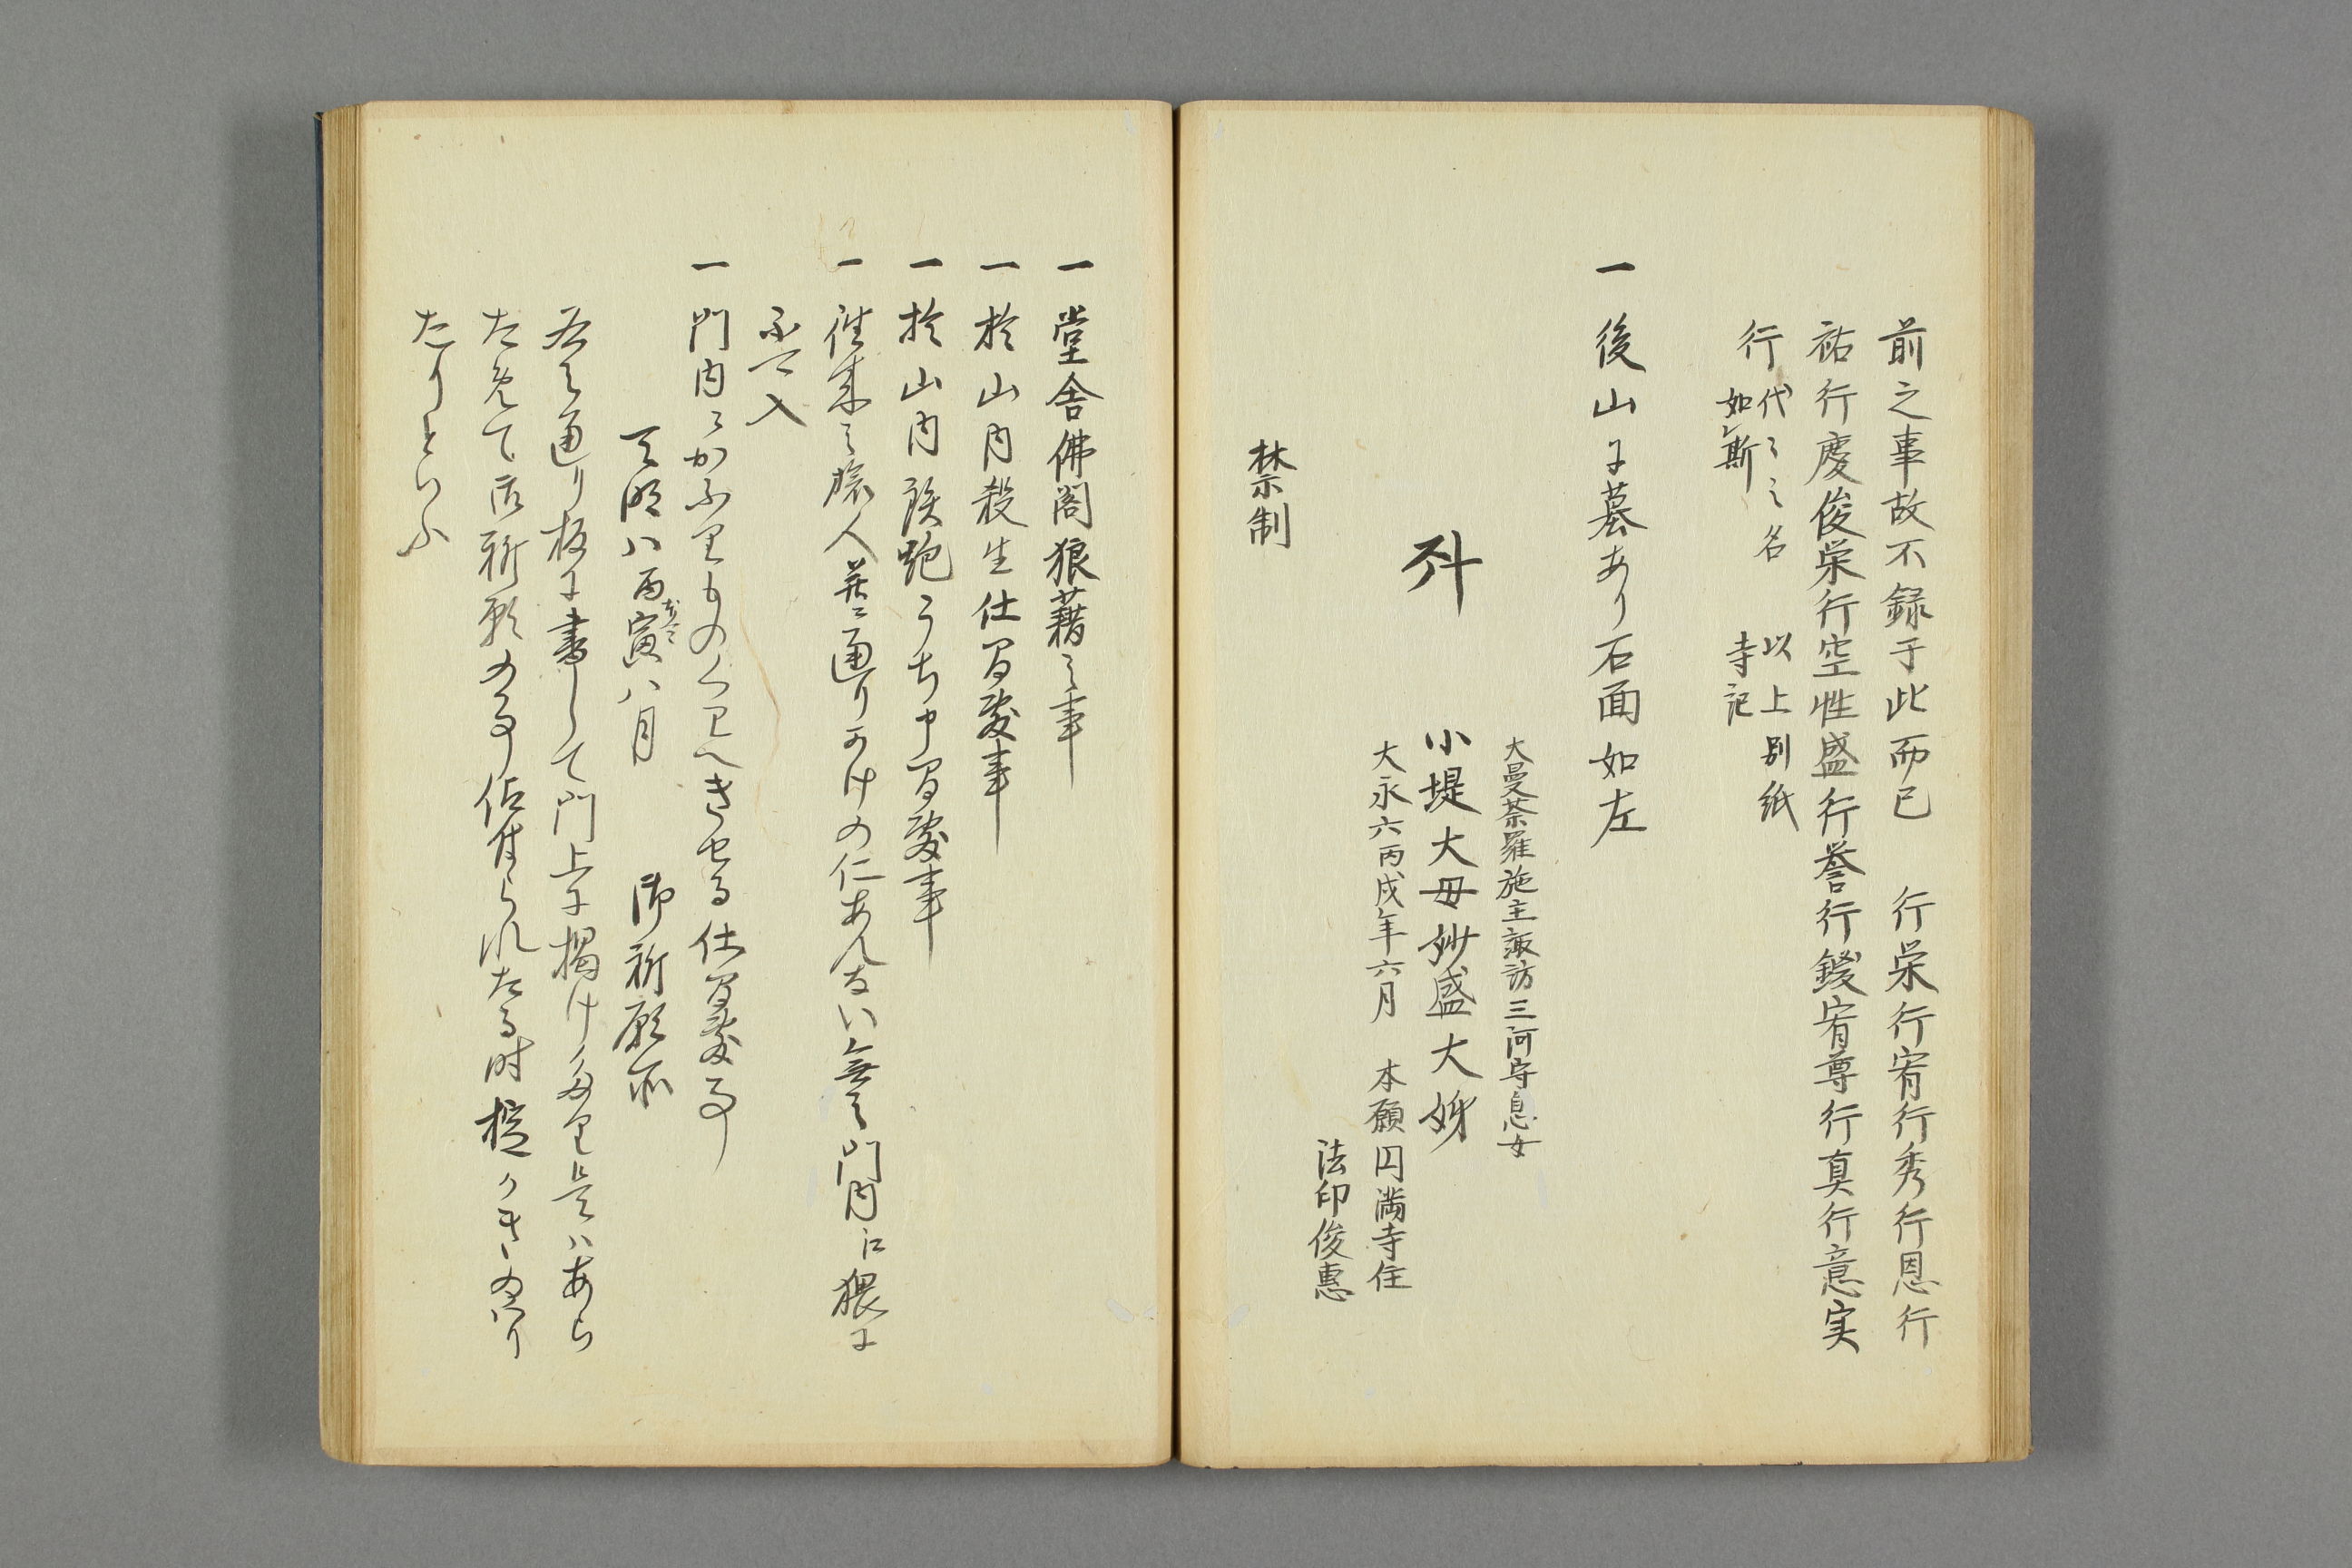 前之事故不録于此而已　行栄行宥行秀行恩行
祐行慶俊栄行空性盛行誉行鍐宥尊行真行意実
行 代々之名
如レ斯
以上別紙
寺記
一 後山に墓あり石面如左
大曼荼羅施主諏訪三河守息女
小堤大毋妙盛大姉
大永六丙戌年六月　本願円満寺住
法印俊惠
禁制
一 堂舎佛閣狼藉之事
一 於山内殺生仕間敷事
一 於山内鉄炮うち申間敷事
一 往来之旅人并ニ通りかけの仁あんない無之門内江猥に
不可入
一 門内ニかふりものくわへきせる仕間敷事
天明八丙寅八月　御祈願所
右之通り板に書して門上に揭けたり是はあら
ためて御祈願の事佐付られたる時
たりといふ